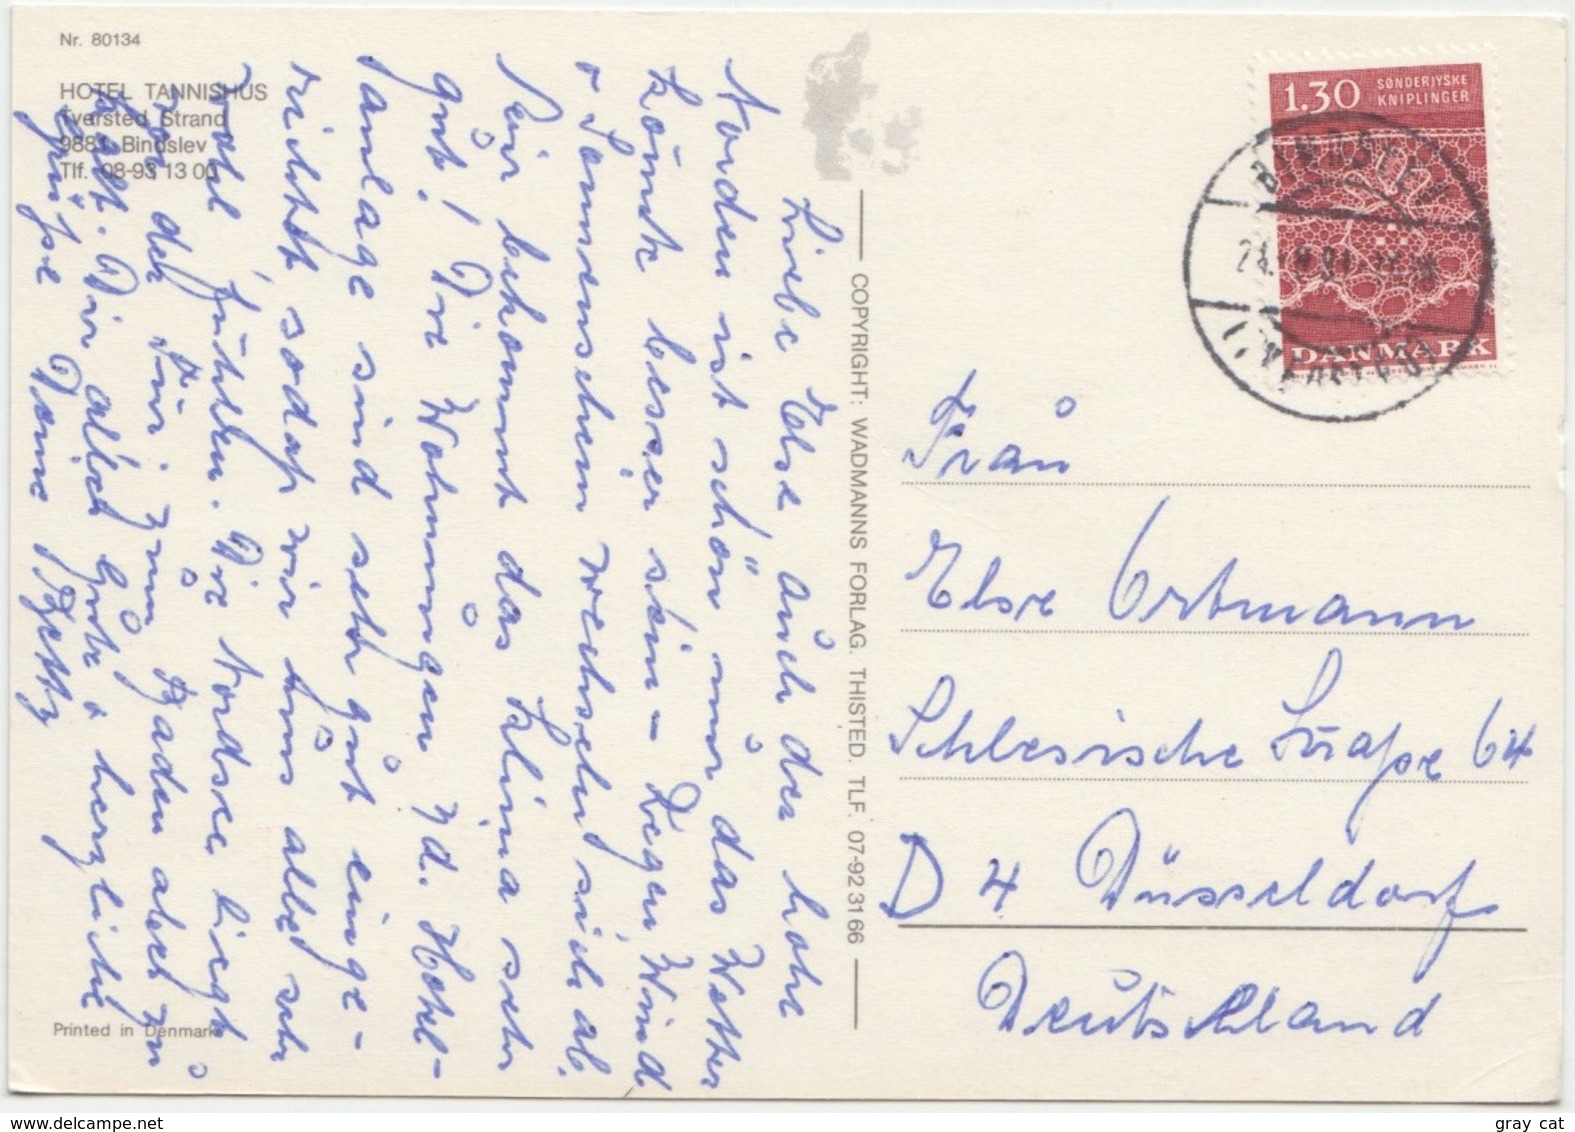 Nr. 80134
HOTEL TANNISHUS
Tversted Strand
9881 Bindslev
Tlf. 08-93 13 00
Liebe Else, auch der hohe
Norden ist schön nur das Wetter
könnte besser sein – Regen Wind
+ Sonnenschein wechseln sich ab.
Mir bekommt das Klima sehr
gut! Die Wohnungen u. Hotel-
anlage sind sehr gut einge-
richtet sodaß wir uns alle sehr
wohl fühlen. Die Nordsee liegt
vor der Tür, zum Baden aber zu
kalt. Dir alles Gute + herzliche
Grüße Deine Betty
Printed in Denmark
COPYRIGHT: WADMANNS FORLAG. THISTED. TLF. 07-92 31 66
1.30 SØNDERJYSKE
KNIPLINGER
DANMARK
BINDSLEV
Frau
Else Ortmann
Schlesische Straße 64
D 4 Düsseldorf
Deutschland
gray_cat